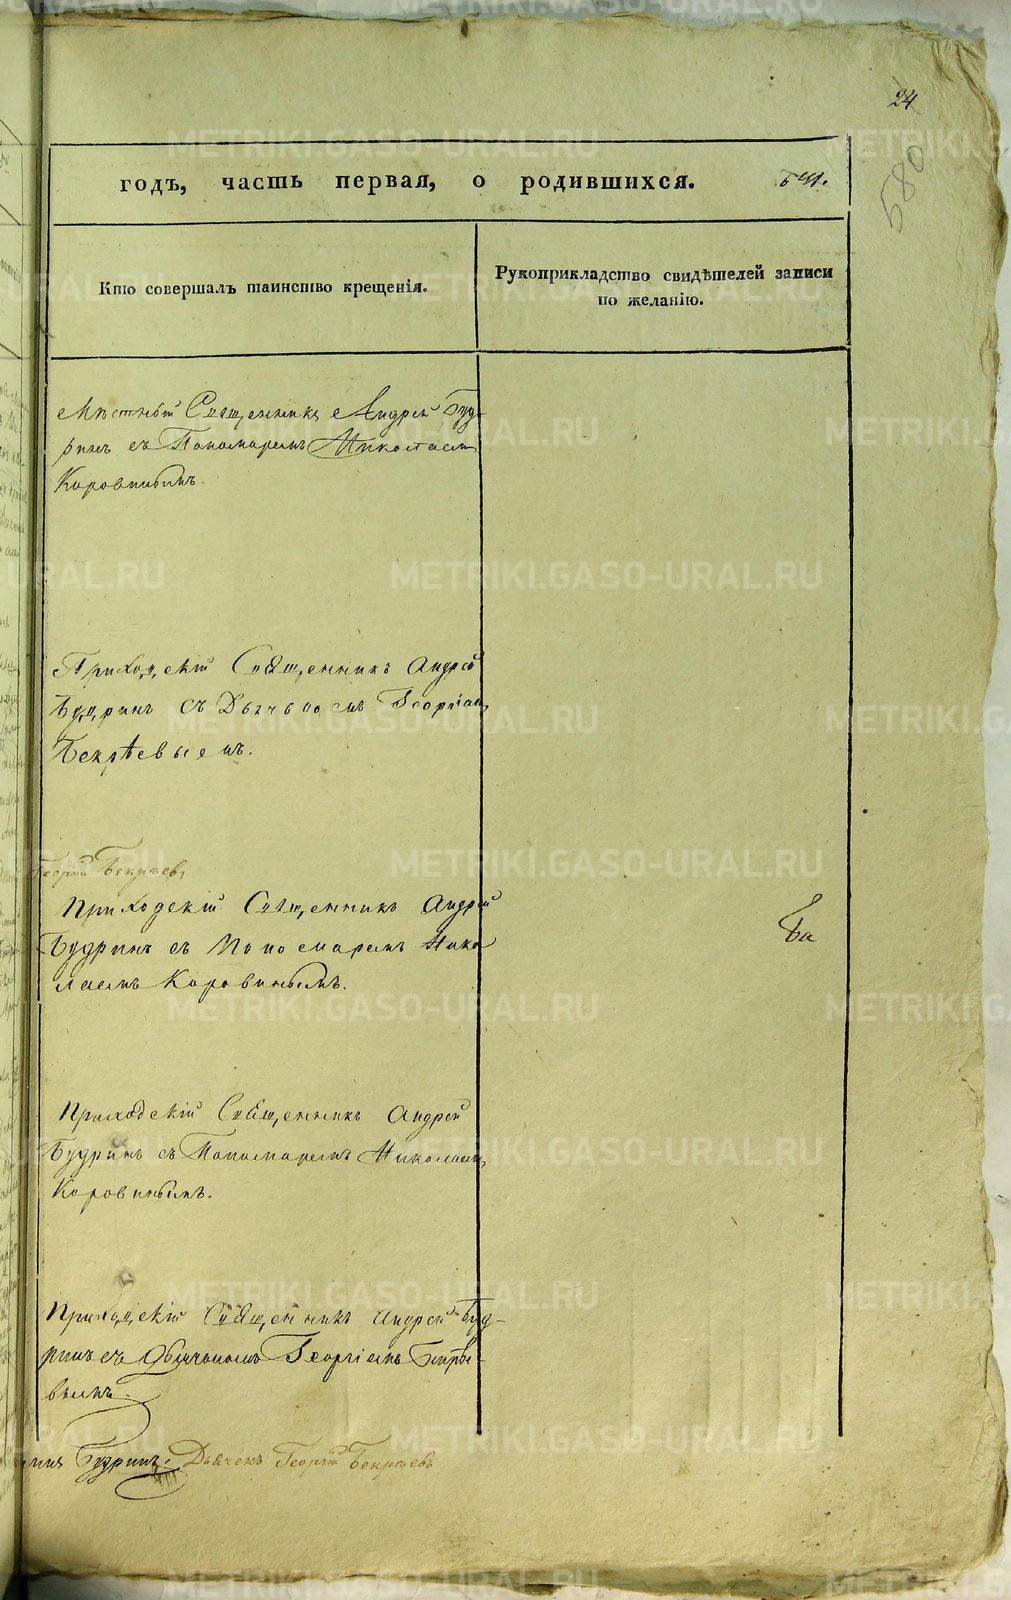 24
580
годъ, часть первая, о родившихся.
Кто совершалъ таинство крещенія.
Рукоприкладство свидѣтелей записи
по желанію.
Мѣстный Священникъ Андрей Буд-
ринъ съ Пономаремъ Николаемъ
Коровинымъ.
Приходскій Священникъ Андрей
Будринъ съ Дьячькомъ Георгіемъ
Бекрѣевыемъ.
Георгій Бекрѣевъ
Приходскій Священникъ Андрей
Будринъ съ Пономаремъ Нико
лаемъ Коровинымъ.
Приходскій Священникъ Андрей
Будринъ съ Пономаремъ Николаемъ
Коровинымъ.
Приходскій Священникъ Андрей Буд-
ринъ съ Дьячькомъ Георгіемъ Бекрѣе-
вымъ.
Будринъ. Дьячекъ Георгій Бекрѣевъ
METRIKI.GASO-URAL.RU